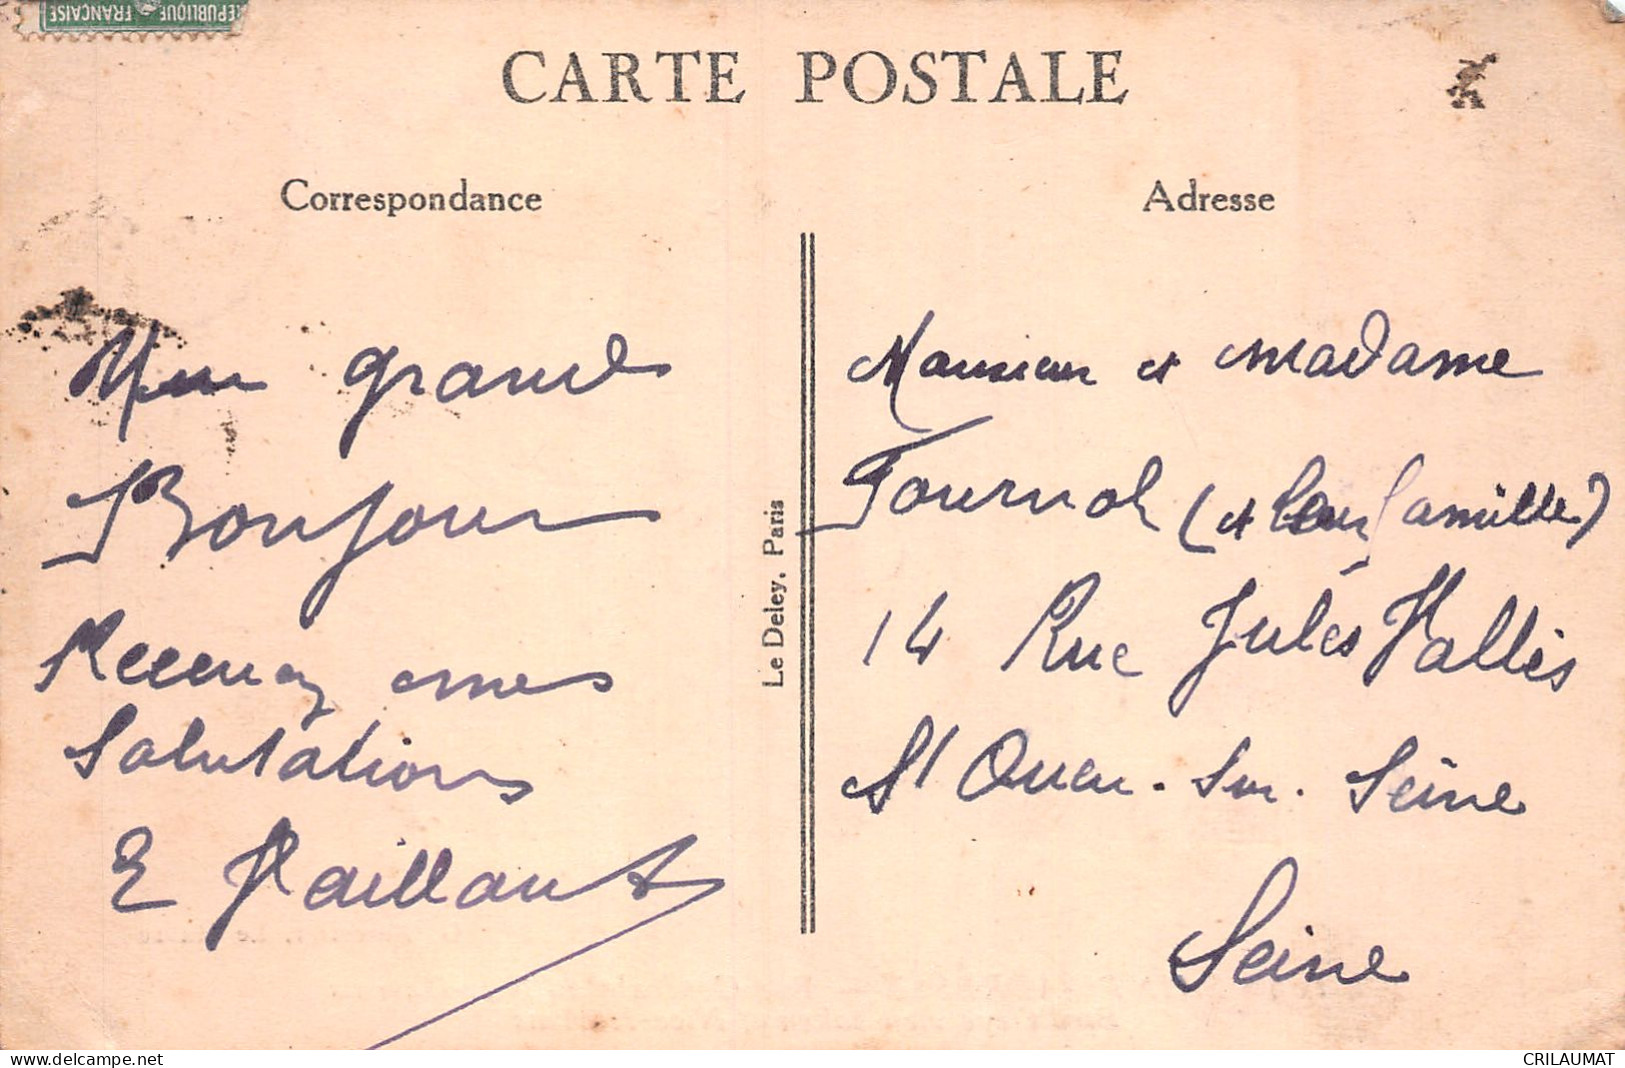 REPUBLIQUE FRANÇAISE
CARTE POSTALE
Correspondance
Adresse
Mon grand
Bonjour
Recevez mes
Salutations
E Vaillant
Le Deley, Paris
Monsieur et madame
Tournol (et leur famille)
14 Rue Jules Vallès
St Ouen-Sur-Seine
Seine
delcampe.net
CRILAUMAT